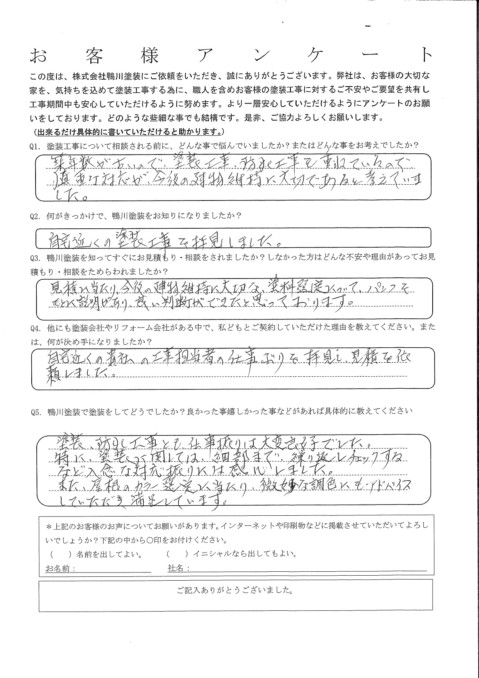 お客様アンケート
この度は、株式会社鴨川塗装にご依頼をいただき、誠にありがとうございます。弊社は、お客様の大切な
家を、気持ちを込めて塗装工事する為に、職人を含めお客様の塗装工事に対するご不安やご要望を共有し
工事期間中も安心していただけるように努めます。より一層安心していただけるようにアンケートのお願
いをしております。どのような些細な事でも結構です。是非、ご協力よろしくお願いします。
（出来るだけ具体的に書いていただけると助かります。）
Q1．塗装工事について相談される前に、どんな事で悩んでいましたか？またはどんな事をお考えでしたか？
築年数が古いので、塗装工事、防水工事を重ねているので
慎重な対応が、今後の建物維持に大切であると考えていま
した。
Q2．何がきっかけで、鴨川塗装をお知りになりましたか？
自宅近くの塗装工事を拝見しました。
Q3．鴨川塗装を知ってすぐにお見積もり・相談をされましたか？しなかった方はどんな不安や理由があってお見
積もり・相談をためらわれましたか？
見積に当たり、今後の建物維持に大切な、塗料選定について、パンフを
もとに説明があり、良い判断ができたと思っております。
Q4．他にも塗装会社やリフォーム会社がある中で、私どもとご契約していただけた理由を教えてください。また
は、何が決め手になりましたか？
自宅近くの貴社の工事担当者の仕事ぶりを拝見し、見積を依
頼しました。
Q5．鴨川塗装で塗装をしてどうでしたか？良かった事嬉しかった事などがあれば具体的に教えてください
塗装、防水工事とも、仕事振りは大変良好でした。
特に、塗装に関しては、細部まで、繰り返しチェックする
など入念な対応振りには感心しました。
また、屋根のカラー選定に当たり、微妙な調色にもアドバイス
していただき満足しています。
＊上記のお客様のお声についてお願いがあります。インターネットや印刷物などに掲載させていただいてよろし
いでしょうか？下記の中から○印をお付けください。
（　）名前を出してよい。　（　）イニシャルなら出してもよい。
お名前：　社名：
ご記入ありがとうございました。